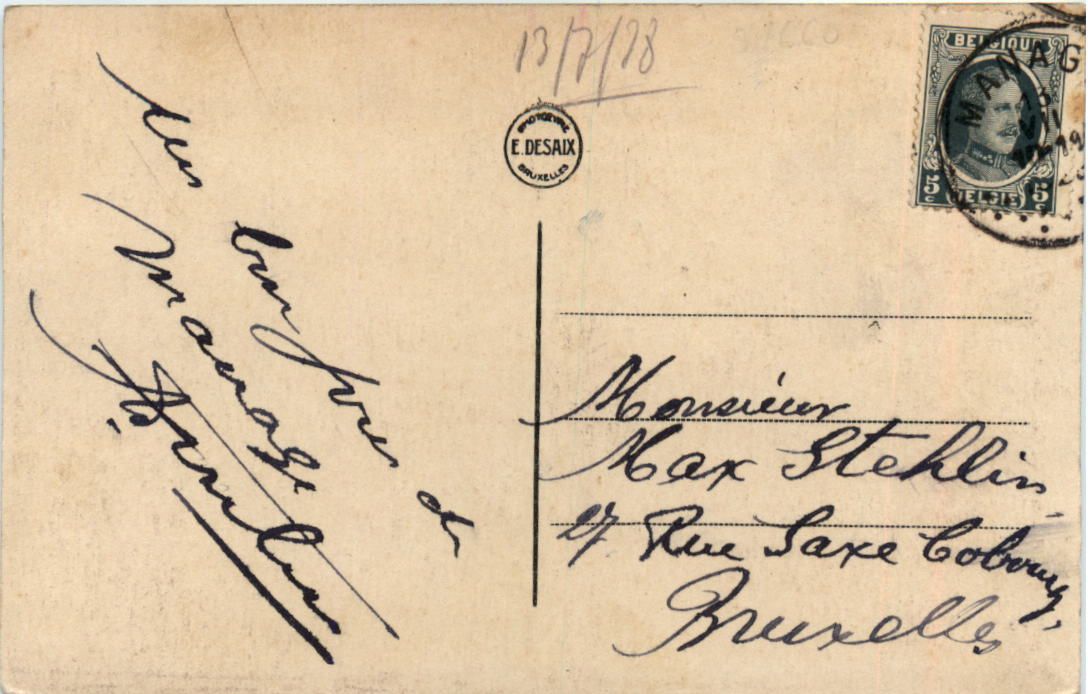 13/7/28
PHOTOGRAVURE
E.DESAIX
BRUXELLES
BELGIQUE
5c BELGIË 5c
MANAG
13
VII
19
bon jour de
Manage
Monsieur
Max Stehlin
27 Rue Saxe Cobourg,
Bruxelles